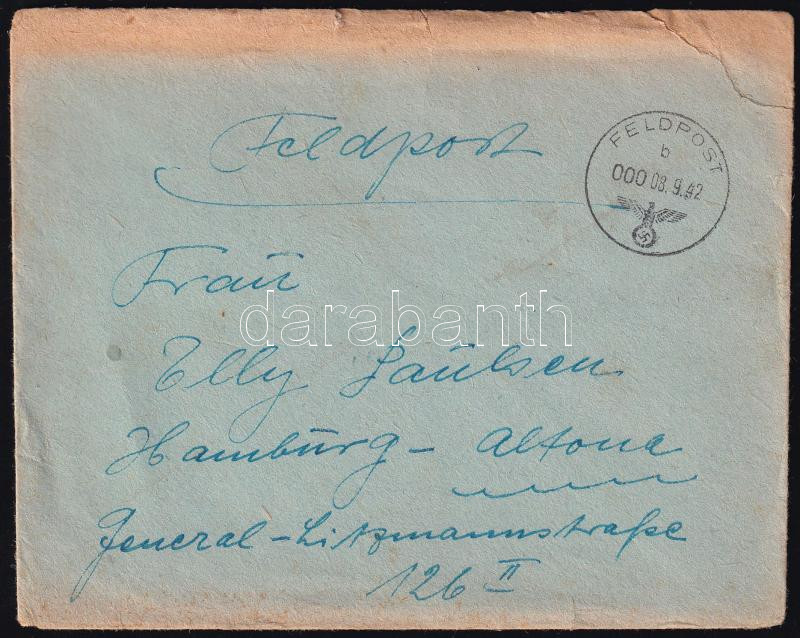 Feldpost
FELDPOST
b
000 08.9.42
Fraŭ
darabanth
Elly Paŭlsen
Hambŭrg - Altona
General-Litzmannstraße
126 II